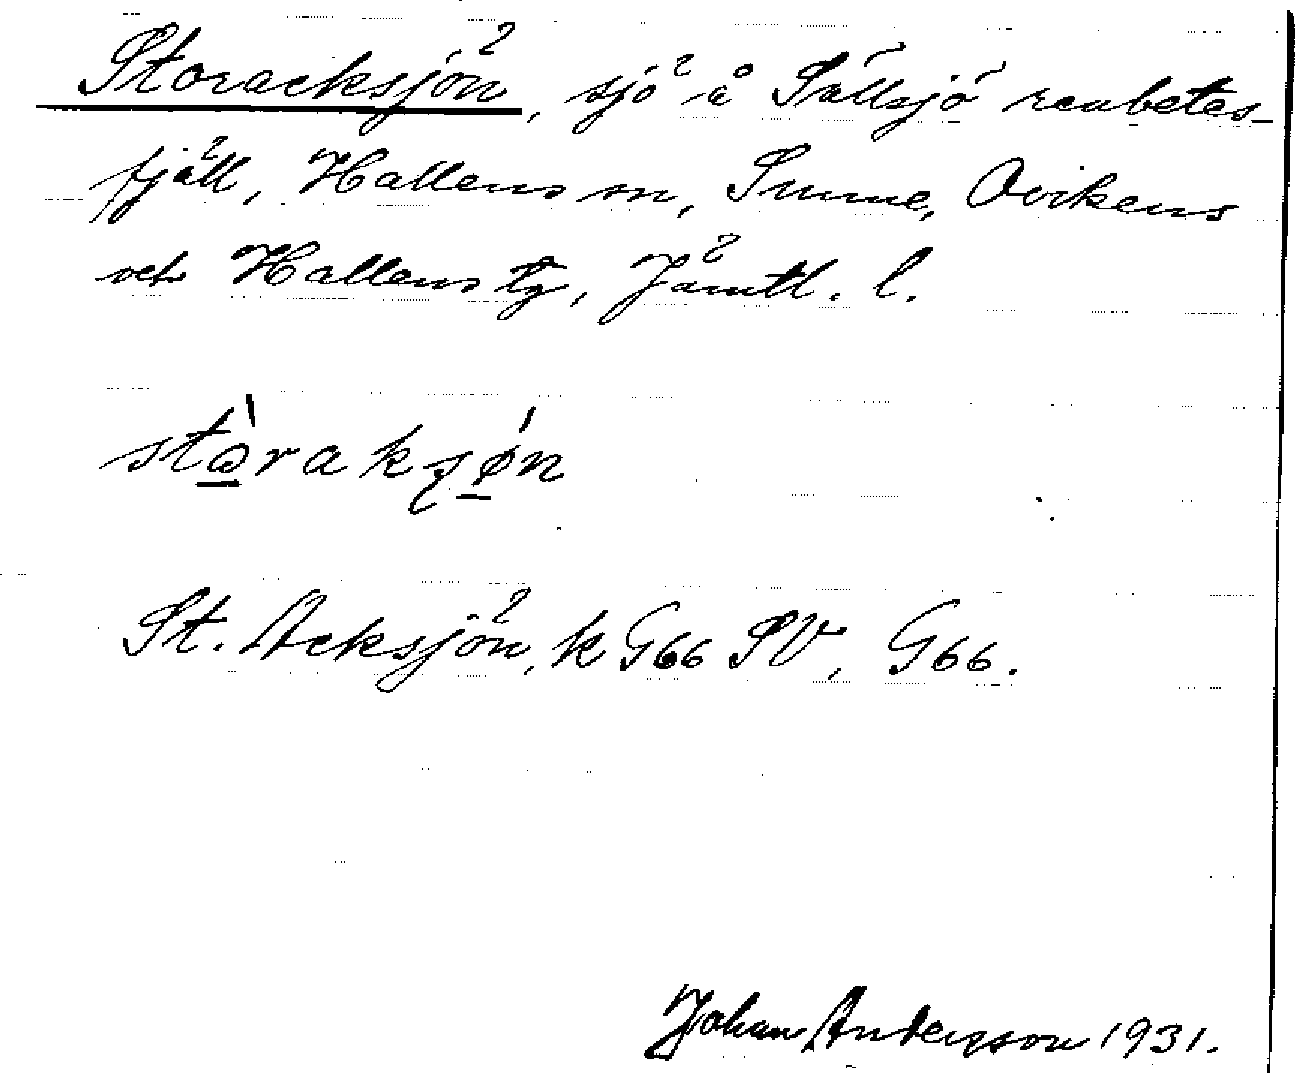 Storacksjön, sjö å Sällsjö renbetes-
fjäll, Hallens sn, Sunne, Ovikens
och Hallens tg, Jämtl. l.
stɷ̀raksǿn
St. Acksjön, k G66 SV, G66.
Johan Andersson 1931.